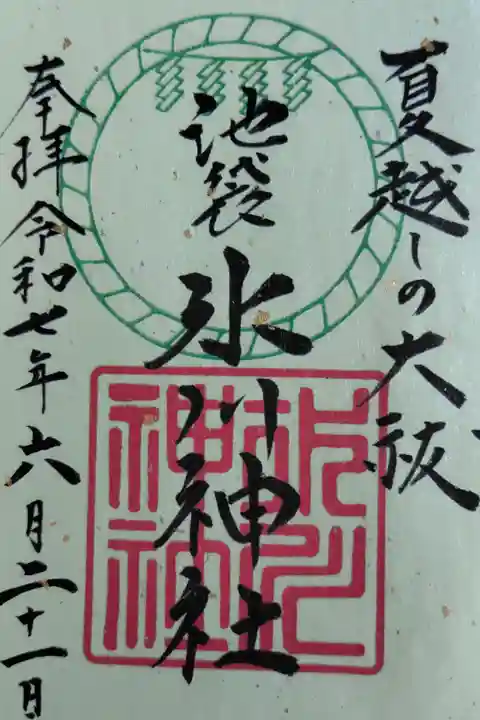 夏越しの大祓
池袋氷川神社
奉拝令和七年六月二十一日
氷川
神社